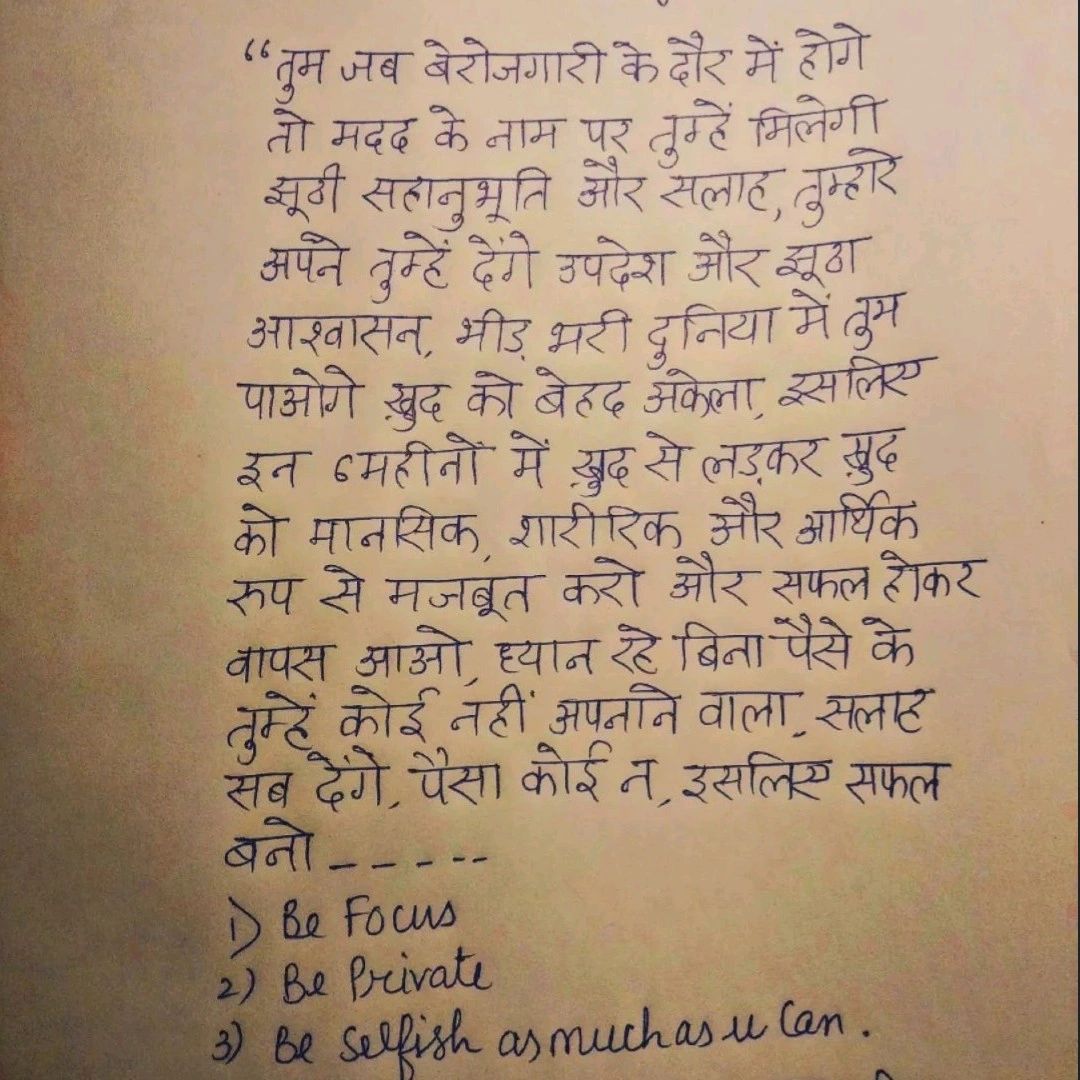 “तुम जब बेरोजगारी के दौर में होगे
तो मदद के नाम पर तुम्हें मिलेगी
झूठी सहानुभूति और सलाह, तुम्हारे
अपने तुम्हें देंगे उपदेश और झूठा
आश्वासन, भीड़ भरी दुनिया में तुम
पाओगे ख़ुद को बेहद अकेला, इसलिए
इन 6महीनों में ख़ुद से लड़कर ख़ुद
को मानसिक, शारीरिक और आर्थिक
रुप से मजबूत करो और सफल होकर
वापस आओ, ध्यान रहे बिना पैसे के
तुम्हें कोई नहीं अपनाने वाला, सलाह
सब देंगे, पैसा कोई न, इसलिए सफल
बनो -----
1) Be Focus
2) Be Private
3) Be Selfish as much as u Can.